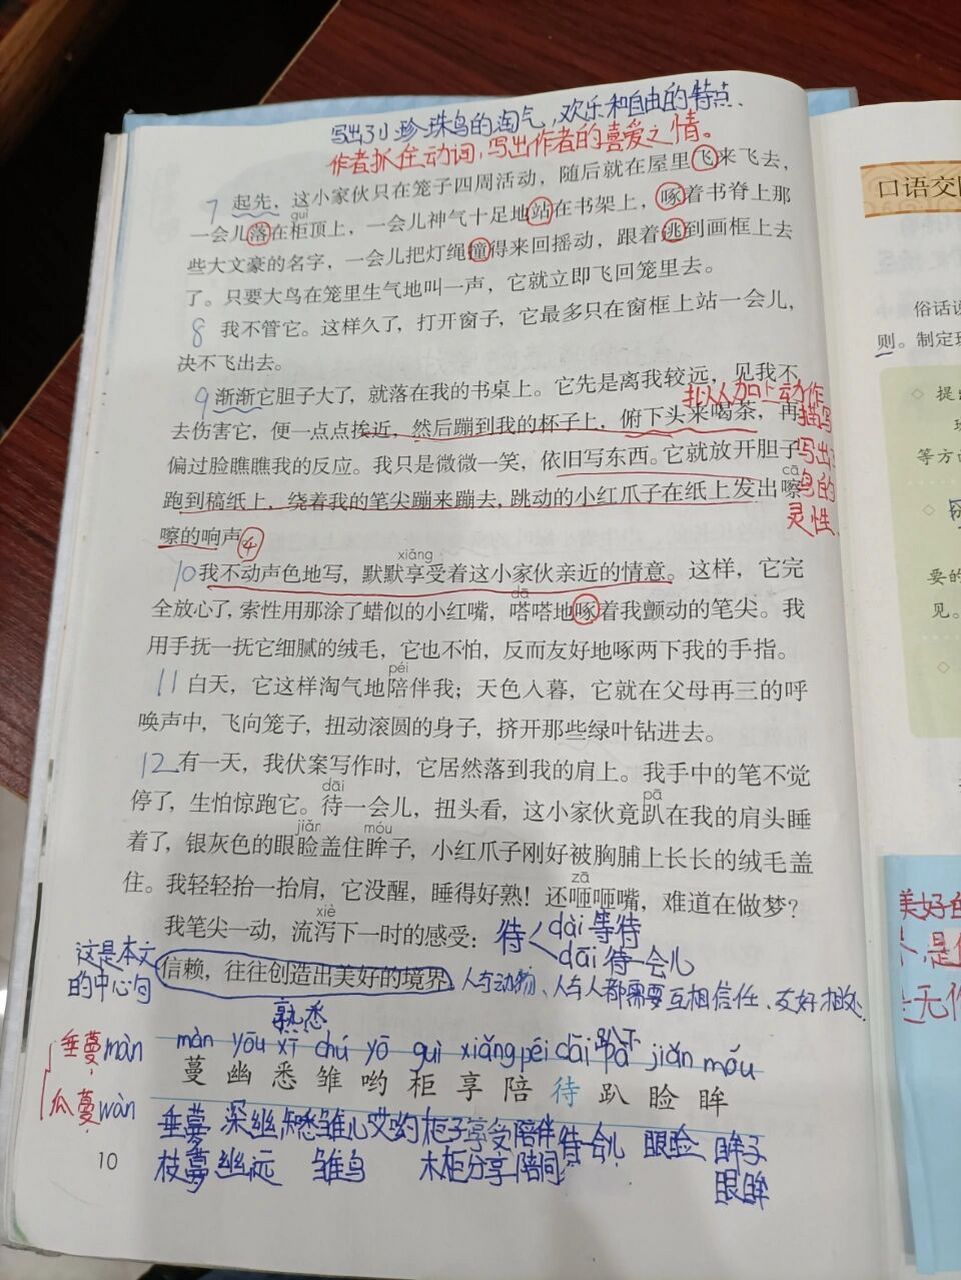 写出了小珍珠鸟的淘气,欢乐和自由的特点.
作者抓住动词,写出作者的喜爱之情。
7 起先,这小家伙只在笼子四周活动,随后就在屋里飞来飞去,
guì
一会儿落在柜顶上,一会儿神气十足地站在书架上,啄着书脊上那
些大文豪的名字,一会儿把灯绳撞得来回摇动,跟着逃到画框上去
了。只要大鸟在笼里生气地叫一声,它就立即飞回笼里去。
8 我不管它。这样久了,打开窗子,它最多只在窗框上站一会儿,
决不飞出去。
9 渐渐它胆子大了,就落在我的书桌上。它先是离我较远,见我不
拟人加上动作
描写
写出了
鸟的
灵性.
去伤害它,便一点点挨近,然后蹦到我的杯子上,俯下头来喝茶,再
偏过脸瞧瞧我的反应。我只是微微一笑,依旧写东西。它就放开胆子
cā
跑到稿纸上,绕着我的笔尖蹦来蹦去,跳动的小红爪子在纸上发出嚓
嚓的响声④
xiǎng
10 我不动声色地写,默默享受着这小家伙亲近的情意。这样,它完
dā
全放心了,索性用那涂了蜡似的小红嘴,嗒嗒地啄着我颤动的笔尖。我
用手抚一抚它细腻的绒毛,它也不怕,反而友好地啄两下我的手指。
péi
11 白天,它这样淘气地陪伴我;天色入暮,它就在父母再三的呼
唤声中,飞向笼子,扭动滚圆的身子,挤开那些绿叶钻进去。
12 有一天,我伏案写作时,它居然落到我的肩上。我手中的笔不觉
dāi pā
停了,生怕惊跑它。待一会儿,扭头看,这小家伙竟趴在我的肩头睡
jiǎn móu
着了,银灰色的眼睑盖住眸子,小红爪子刚好被胸脯上长长的绒毛盖
zā
住。我轻轻抬一抬肩,它没醒,睡得好熟!还咂咂嘴,难道在做梦?
xiè
我笔尖一动,流泻下一时的感受:
待 dài 等待
dāi 待一会儿
这是本文
的中心句
信赖,往往创造出美好的境界
人与动物、人与人都需要互相信任、友好相处.
熟悉
趴下
màn yōu xī chú yō guì xiǎng péi dāi pā jiǎn móu
蔓 幽 悉 雏 哟 柜 享 陪 待 趴 睑 眸
垂蔓 màn
瓜蔓 wàn
垂蔓 深幽 知悉 雏儿 哎哟 柜子 享受 陪伴 待一会儿 眼睑 眸子
枝蔓 幽远 雏鸟 木柜 分享 陪同 眼眸
10
口语交
俗话说
则。制定班
提出
等方面
要的
见。
美好的